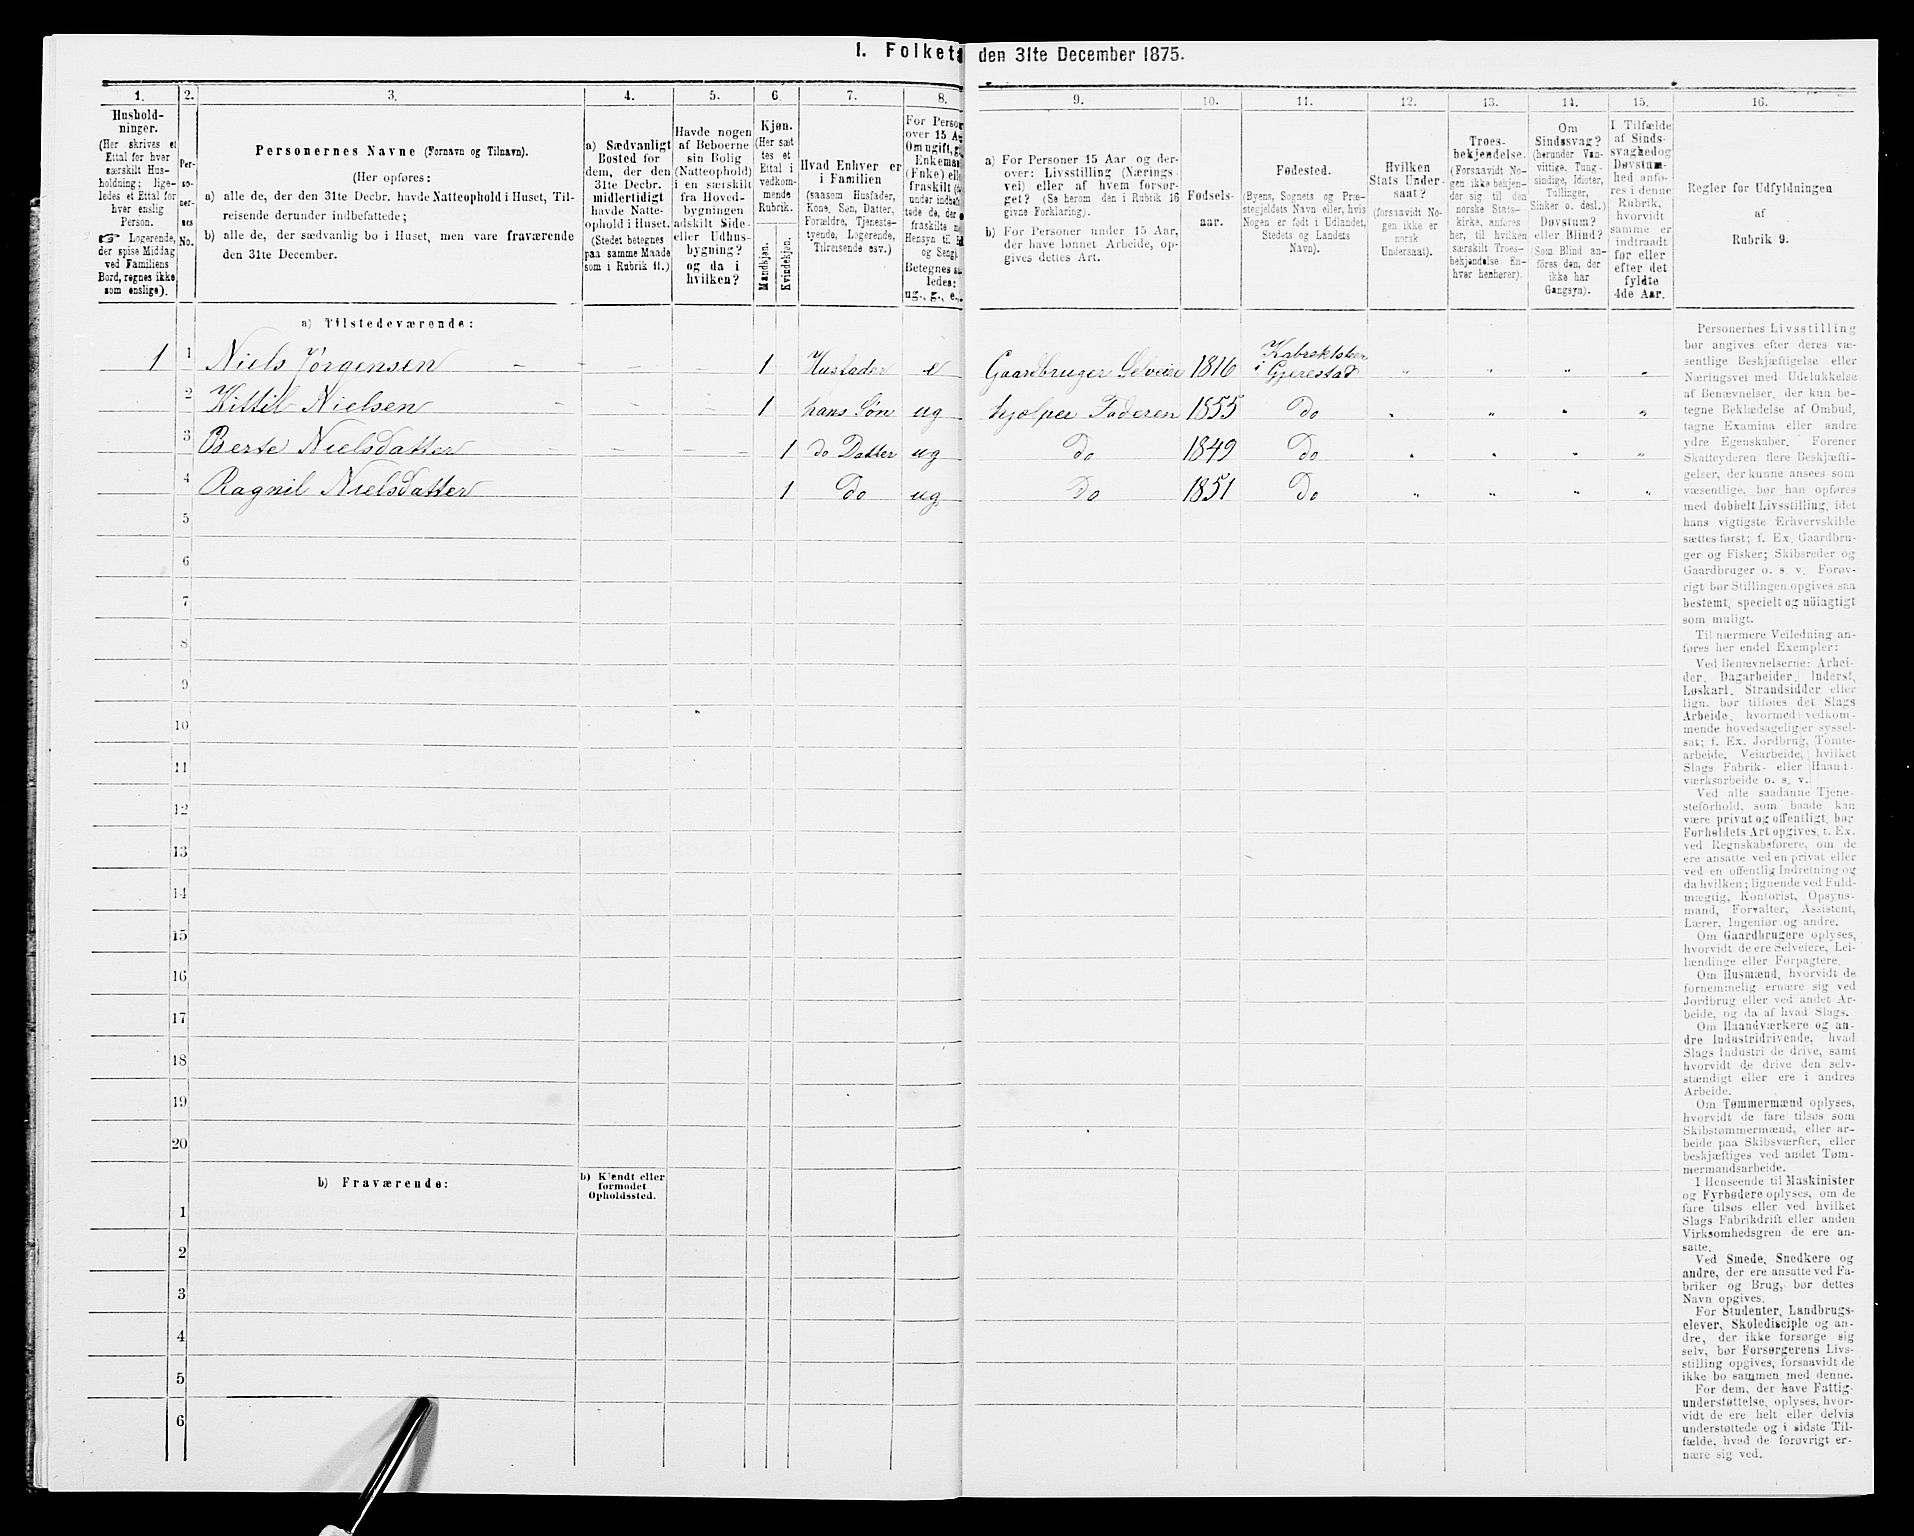 1. Folket
den 31te December 1875.
1. 2. 3. 4. 5. 6 7. 8. 9. 10. 11. 12. 13. 14. 15. 16.
Hushold-
ninger.
(Her skrives et
Ettal for hver
særskilt Hus-
holdning; lige-
ledes et Ettal for
hver enslig
Person.
☞ Logerende,
der spise Middag
ved Familiens
Bord, regnes ikke
som enslige).
Per-
so-
ner-
nes
No.
Personernes Navne (Fornavn og Tilnavn).
(Her opføres:
a) alle de, der den 31te Decbr. havde Natteophold i Huset, Til-
reisende derunder indbefattede;
b) alle de, der sædvanlig bo i Huset, men vare fraværende
den 31te December.
a) Sædvanligt
Bosted for
dem, der den
31te Decbr.
midlertidigt
havde Natte-
ophold i Huset.
(Stedet betegnes
paa samme Maade
som i Rubrik 11.)
Havde nogen
af Beboerne
sin Bolig
(Natteophold)
i en særskilt
fra Hoved-
bygningen
adskilt Side-
eller Udhus-
bygning?
og da i
hvilken?
Kjøn.
(Her sæt
tes et
Ettal i
vedkom-
mende
Rubrik.
Mandkjøn.
Kvindekjøn.
Hvad Enhver er
i Familien
(saasom Husfader,
Kone, Søn, Datter,
Forældre, Tjeneste-
tyende, Logerende,
Tilreisende osv.)
For Person
over 15 A
Om ugift, g
Enkeman
(Enke) ell
fraskilt (
under indbef
tede de, der
fraskilte m
Hensyn til
og Seng).
Betegnes s
ledes:
ug., g., e.,
a) For Personer 15 Aar og der-
over: Livsstilling (Nærings-
vei) eller af hvem forsør-
get? (Se herom den i Rubrik 16
givne Forklaring).
b) For Personer under 15 Aar,
der have lønnet Arbeide, op-
gives dettes Art.
Fødsels-
aar.
Fødested.
(Byens, Sognets og Præ-
stegjeldets Navn eller, hvis
Nogen er født i Udlandet,
Stedets og Landets
Navn).
Hvilken
Stats Under-
saat?
(forsaavidt No-
gen ikke er
norsk
Undersaat).
Troes-
bekjendelse.
(Forsaavidt No-
gen ikke bekjen-
der sig til den
norske Stats-
kirke, anføres
her, til hvilken
særskilt Troes-
bekjendelse En-
hver henhører).
Om
Sindssvag?
(herunder Van-
vittige, Tung-
sindige, Idioter,
Tullinger,
Sinker o. desl.)
Døvstum?
eller Blind?
(Som Blind an-
føres den, der
ikke har
Gangsyn).
I Tilfælde
af Sinds-
svaghed og
Døvstum-
hed anfø-
res i denne
Rubrik,
hvorvidt
samme er
indtraadt
før eller
efter det
fyldte
4de Aar.
Regler for Udfyldningen
af
Rubrik 9.
a) Tilstedeværende:
1 1 Niels Jørgensen – – – – – 1 Husfader e Gaardbruger Selveier 1816 i Gjerestad „ „ „ „
2 Kittil Nielsen – – – 1 hans Søn ug hjælper Faderen 1855 Do „ „ „ „
3 Berte Nielsdatter – – – – 1 do Datter ug Do 1849 Do „ „ „ „
4 Ragnil Nielsdatter 1 Do ug Do 1851 Do „ „ „ „
5
6
7
8
9
10
11
12
13
14
15
16
17
18
19
20
b) Fraværende:
b) Kjendt eller
formodet
Opholdssted.
1
2
3
4
5
6
Personernes Livsstilling
bør angives efter deres væ-
sentlige Beskjæftigelse eller
Næringsvei med Udelukkelse
af Benævnelser, der kun be-
tegne Beklædelse af Ombud,
tagne Examina eller andre
ydre Egenskaber. Forener
Skatteyderen flere Beskjæfti-
gelser, der kunne ansees som
væsentlige, bør han opføres
med dobbelt Livsstilling, idet
hans vigtigste Erhvervskilde
sættes først; f. Ex. Gaardbru-
ger og Fisker; Skibsreder og
Gaardbruger o. s. v. Forøv-
rigt bør Stillingen opgives saa
bestemt, specielt og nöiagtigt
som muligt.
Til nærmere Veiledning an-
føres her endel Exempler:
Ved Benævnelserne: Arbei-
der, Dagarbeider, Inderst,
Løskarl, Strandsidder eller
lign. bør tilføies det Slags
Arbeide, hvormed vedkom-
mende hovedsageligjer syssel-
sat; f. Ex. Jordbrug, Tomte-
arbeide, Veiarbeide, hvilket
Slags Fabrik- eller Haand-
værksarbeide o. s. v.
Ved alle saadanne Tjene-
steforhold, som baade kan
være privat og offentligt, bør
Forholdets Art opgives, t. Ex.
ved Regnskabsførere, om de
ere ansatte ved en privat eller
ved en offentlig Indretning og
da hvilken; lignende ved Fuld-
mægtig, Kontorist, Opsyns-
mand, Forvalter, Assistent,
Lærer, Ingeniør og andre.
Om Gaardbrugere oplyses,
hvorvidt de ere Selveiere, Lei-
lændinge eller Forpagtere.
Om Husmænd, hvorvidt de
fornemmelig ernære sig ved
Jordbrug eller ved andet Ar-
beide, og da af hvad Slags.
Om Haandværkere og an-
dre Industridrivende, hvad
Slags Industri de drive, samt
hvorvidt de drive den selv-
stændigt eller ere i andres
Arbeide.
Om Tømmermænd oplyses,
hvorvidt de fare tilsøs som
Skibstømmermænd, eller ar-
beide paa Skibsværfter, eller
beskjæftiges ved andet Tøm-
mermandsarbeide.
I Henseende til Maskinister
og Fyrbødere oplyses, om de
fare tilsøs eller ved hvilket
Slags Fabrikdrift eller anden
Virksomhedsgren de ere an-
satte.
Ved Smede, Snedkere og
andre, der ere ansatte ved Fa-
briker og Brug, bør dettes
Navn opgives.
For Studenter, Landbrugs-
elever, Skoledisciple og an-
dre, der ikke forsørge sig
selv, bør Forsørgerens Livs-
stilling opgives, forsaavidt de
ikke bo sammen med denne.
For dem, der have Fattig-
understøttelse, oplyses, hvor-
vidt de ere helt eller delvis
understøttede og i sidste Til-
fælde, hvad de forøvrigt er-
nære sig ved.